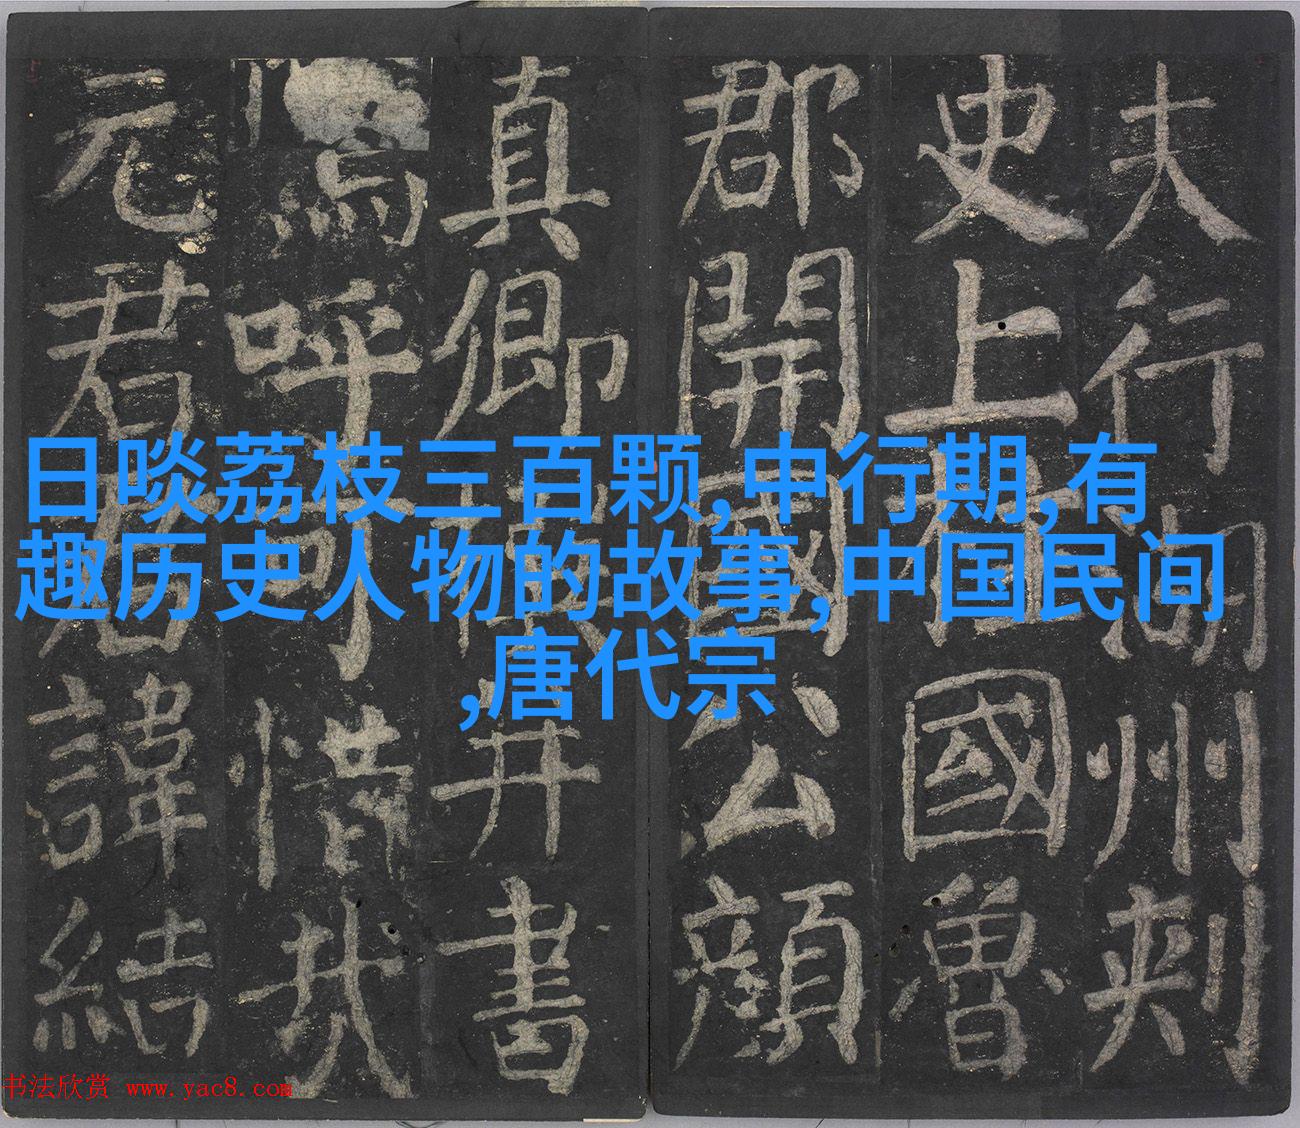 夫行湖州刺
史上柱國魯
郡開國公顏
真卿撰并書
嗚呼可惜哉
元君君諱結
日啖荔枝三百颗,中行期,有
趣历史人物的故事,中国民间
,唐代宗
书法欣赏 www.yac8.com